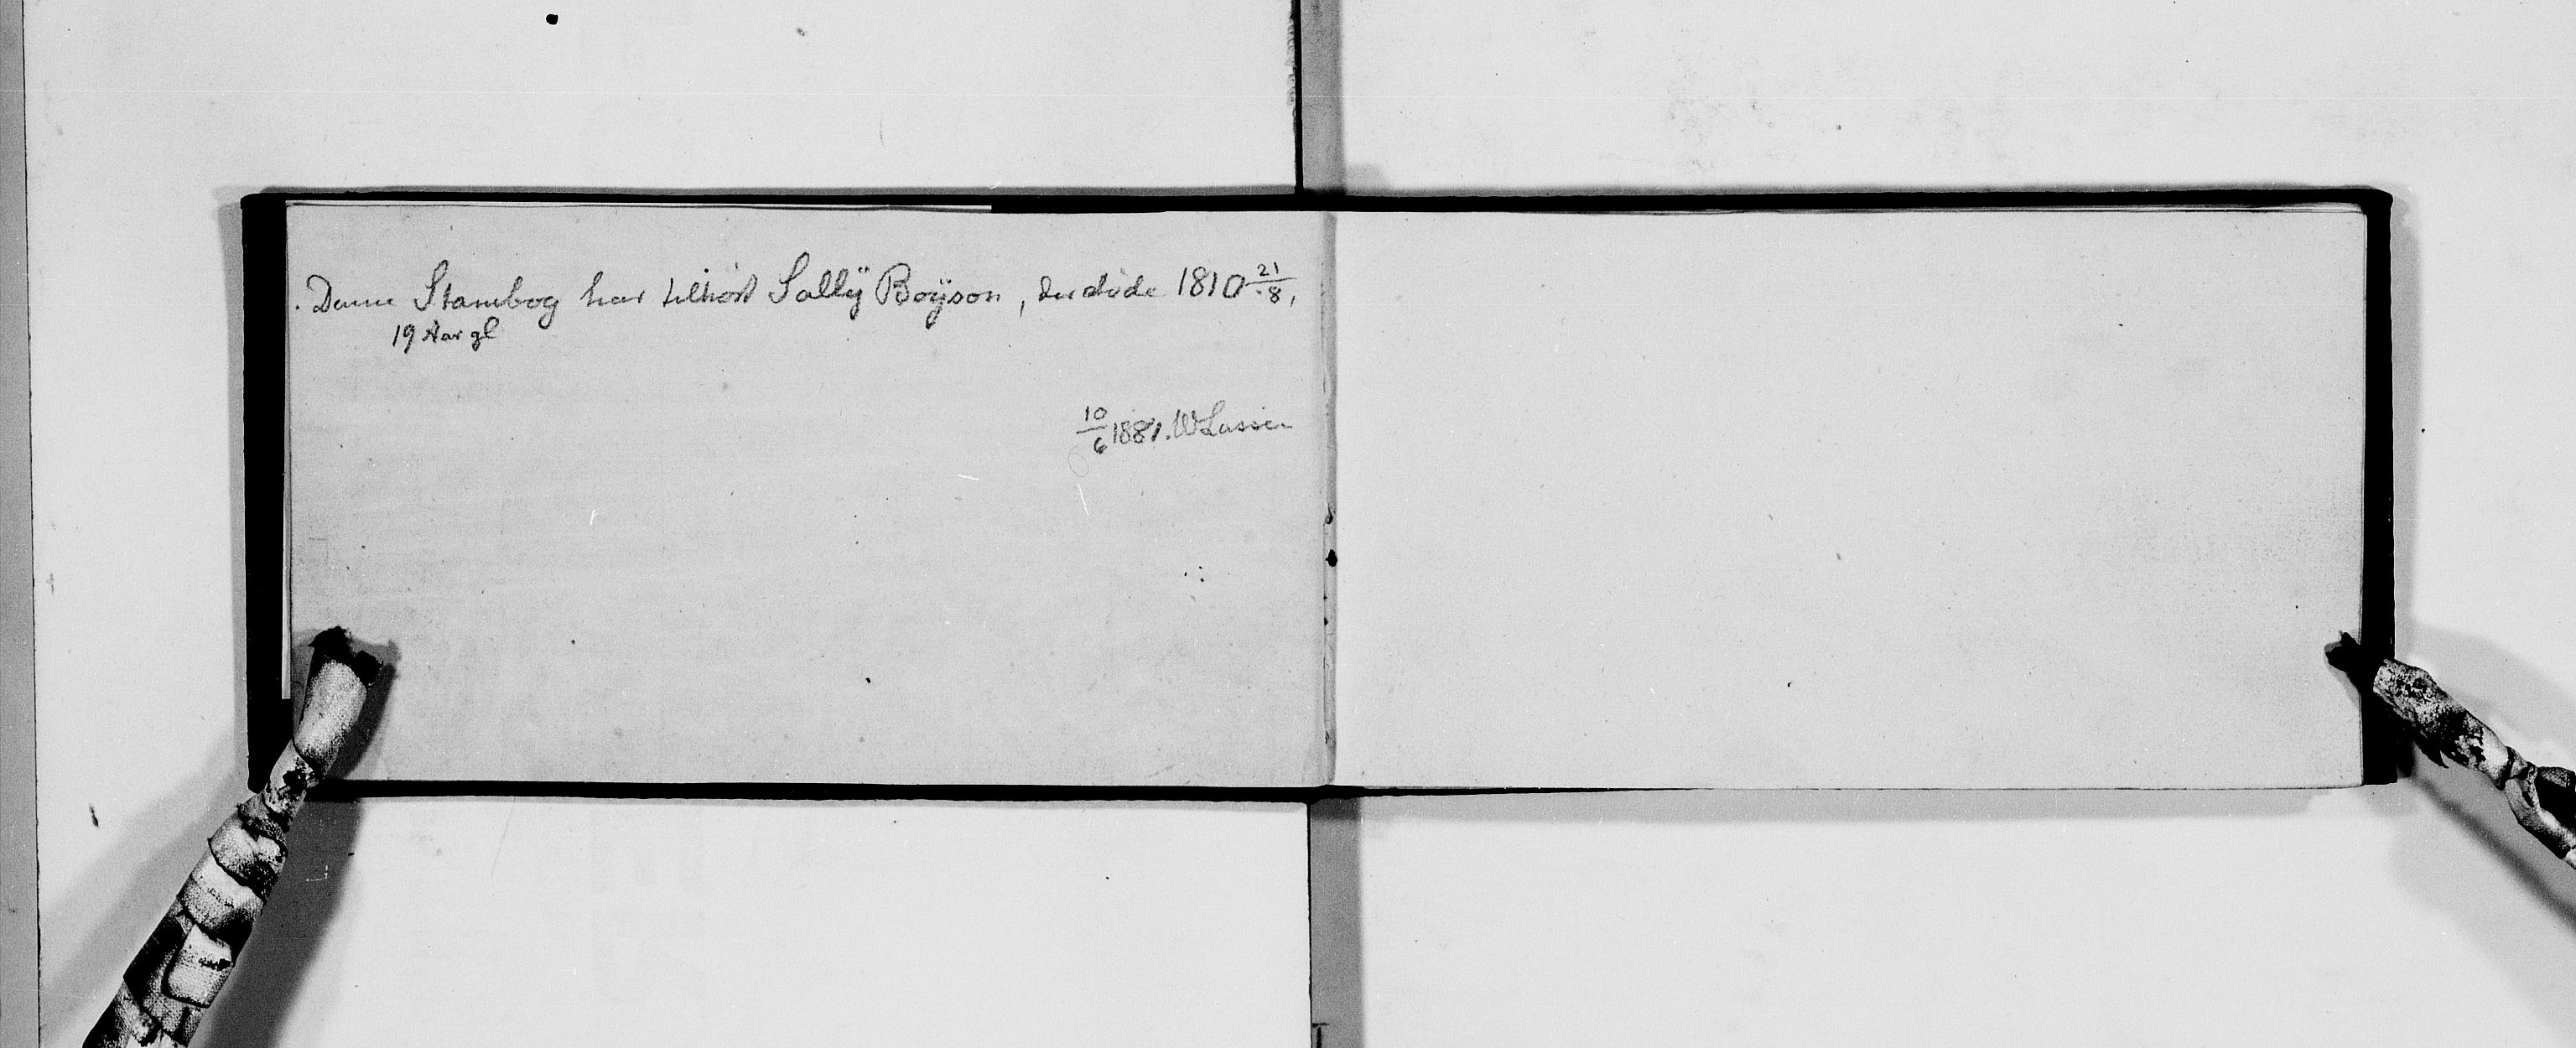 Denne Stambog har tilhört Sallÿ Boÿson, der döde 1810 21/8,
19 Aar gl
10/6 1881. W Lassen